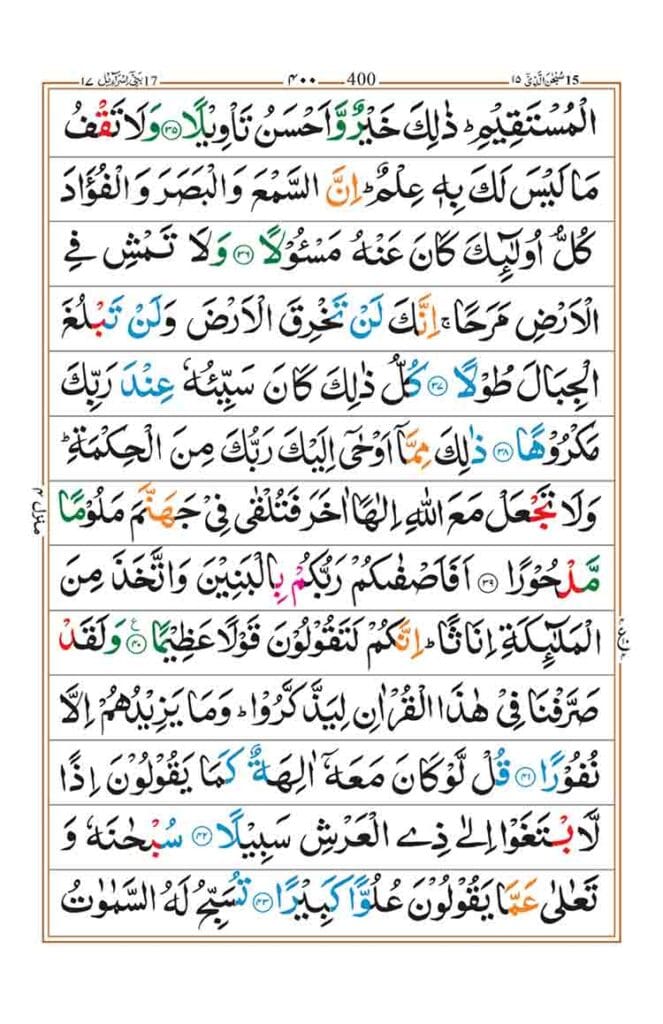 ١٧ بَنِیْٓ اِسْرَآءِیْل 17 ٤٠٠ 400 ١٥ سُبْحٰنَ الَّذِیْٓ 15
الْمُسْتَقِیْمِ ؕ ذٰلِكَ خَیْرٌ وَّ اَحْسَنُ تَاْوِیْلًا ﴿۳۵﴾ وَلَا تَقْفُ
مَا لَیْسَ لَكَ بِهٖ عِلْمٌ ؕ اِنَّ السَّمْعَ وَالْبَصَرَ وَالْفُؤَادَ
كُلُّ اُولٰٓىِٕكَ كَانَ عَنْهُ مَسْـُٔوْلًا ﴿۳۶﴾ وَلَا تَمْشِ فِی
الْاَرْضِ مَرَحًا ۚ اِنَّكَ لَنْ تَخْرِقَ الْاَرْضَ وَلَنْ تَبْلُغَ
الْجِبَالَ طُوْلًا ﴿۳۷﴾ كُلُّ ذٰلِكَ كَانَ سَیِّئُهٗ عِنْدَ رَبِّكَ
مَكْرُوْهًا ﴿۳۸﴾ ذٰلِكَ مِمَّاۤ اَوْحٰۤی اِلَیْكَ رَبُّكَ مِنَ الْحِكْمَةِ ؕ
وَلَا تَجْعَلْ مَعَ اللّٰهِ اِلٰهًا اٰخَرَ فَتُلْقٰی فِیْ جَهَنَّمَ مَلُوْمًا
مَّدْحُوْرًا ﴿۳۹﴾ اَفَاَصْفٰىكُمْ رَبُّكُمْ بِالْبَنِیْنَ وَاتَّخَذَ مِنَ
الْمَلٰٓىِٕكَةِ اِنَاثًا ؕ اِنَّكُمْ لَتَقُوْلُوْنَ قَوْلًا عَظِیْمًا ﴿۴۰﴾ ع وَلَقَدْ
صَرَّفْنَا فِیْ هٰذَا الْقُرْاٰنِ لِیَذَّكَّرُوْا ؕ وَمَا یَزِیْدُهُمْ اِلَّا
نُفُوْرًا ﴿۴۱﴾ قُلْ لَّوْ كَانَ مَعَهٗۤ اٰلِهَةٌ كَمَا یَقُوْلُوْنَ اِذًا
لَّابْتَغَوْا اِلٰی ذِی الْعَرْشِ سَبِیْلًا ﴿۴۲﴾ سُبْحٰنَهٗ وَ
تَعٰلٰی عَمَّا یَقُوْلُوْنَ عُلُوًّا كَبِیْرًا ﴿۴۳﴾ تُسَبِّحُ لَهُ السَّمٰوٰتُ
منزل ۴